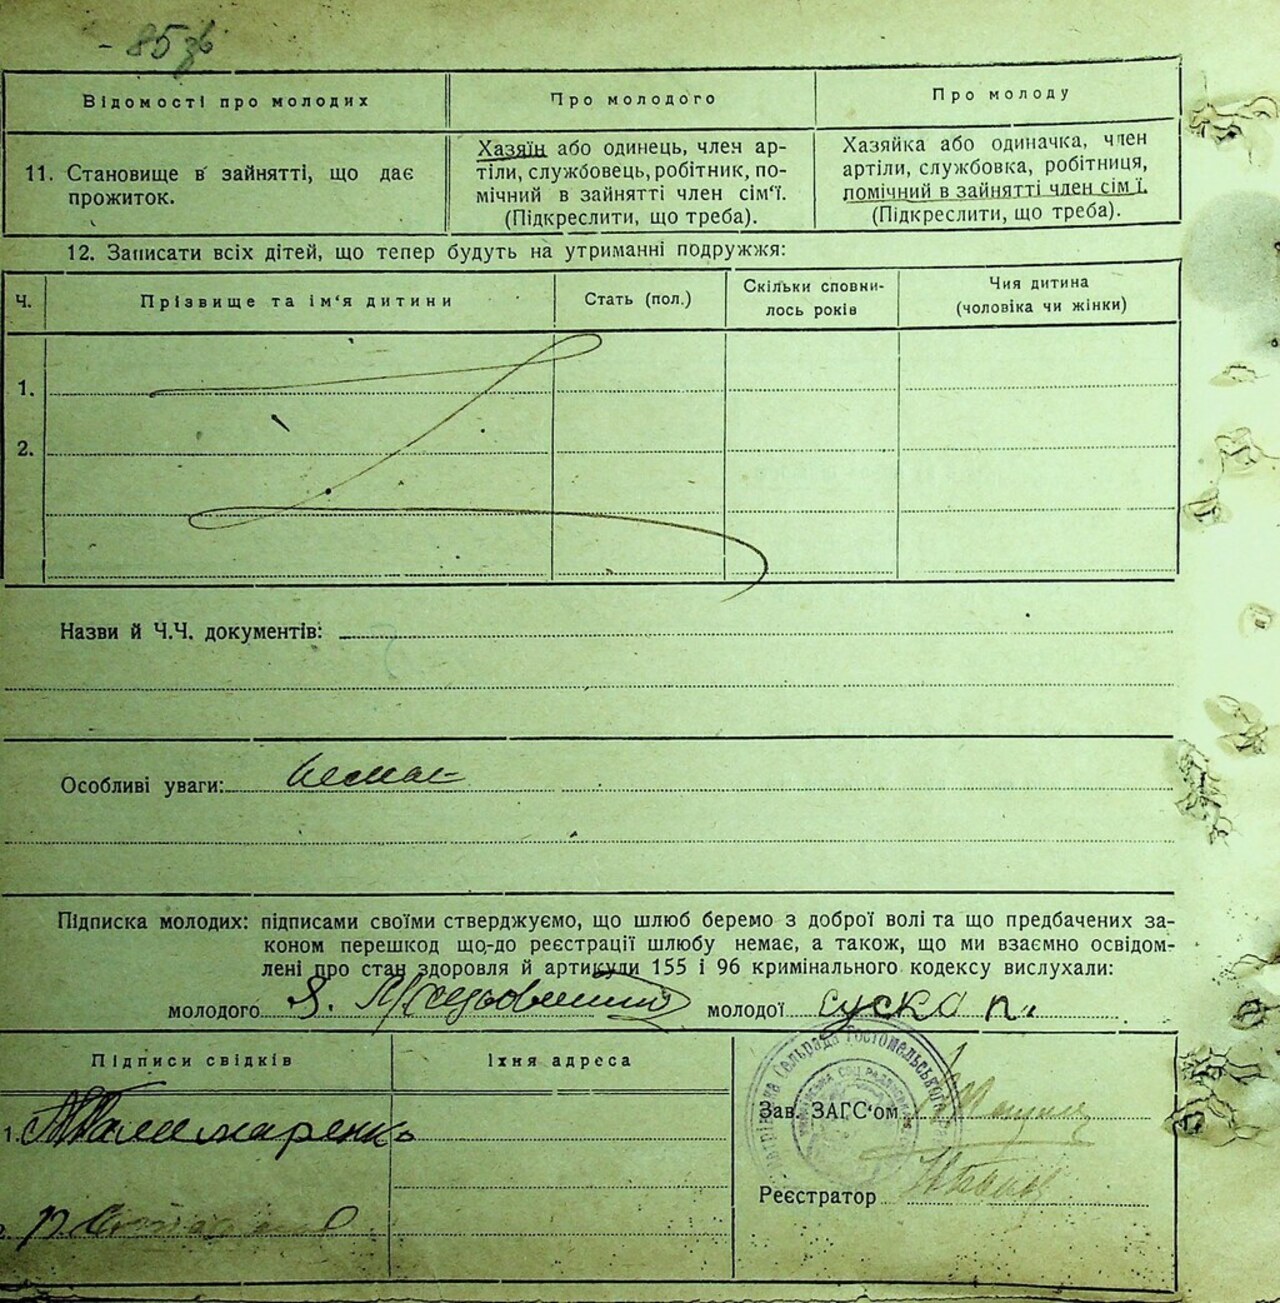 - 85 зв
Відомості про молодих
Про молодого
Про молоду
11. Становище в зайнятті, що дає прожиток.
Хазяїн або одинець, член ар-
тіли, службовець, робітник, по-
мічний в зайнятті член сім'ї.
(Підкреслити, що треба).
Хазяйка або одиначка, член
артіли, службовка, робітниця,
помічний в зайнятті член сім'ї.
(Підкреслити, що треба).
12. Записати всіх дітей, що тепер будуть на утриманні подружжя:
Ч.
Прізвище та ім'я дитини
Стать (пол.)
Скільки сповни-
лось років
Чия дитина
(чоловіка чи жінки)
1.
2.
Назви й Ч.Ч. документів:
Особливі уваги: немає
Підписка молодих: підписами своїми стверджуємо, що шлюб беремо з доброї волі та що предбачених за-
коном перешкод що-до реєстрації шлюбу немає, а також, що ми взаємно освідом-
лені про стан здоровля й артикули 155 і 96 кримінального кодексу вислухали:
молодого Я.
молодої суско п.
Підписи свідків
Їхня адреса
Сельрада Гостомельського
Зав. ЗАГС'ом
1.
Реєстратор